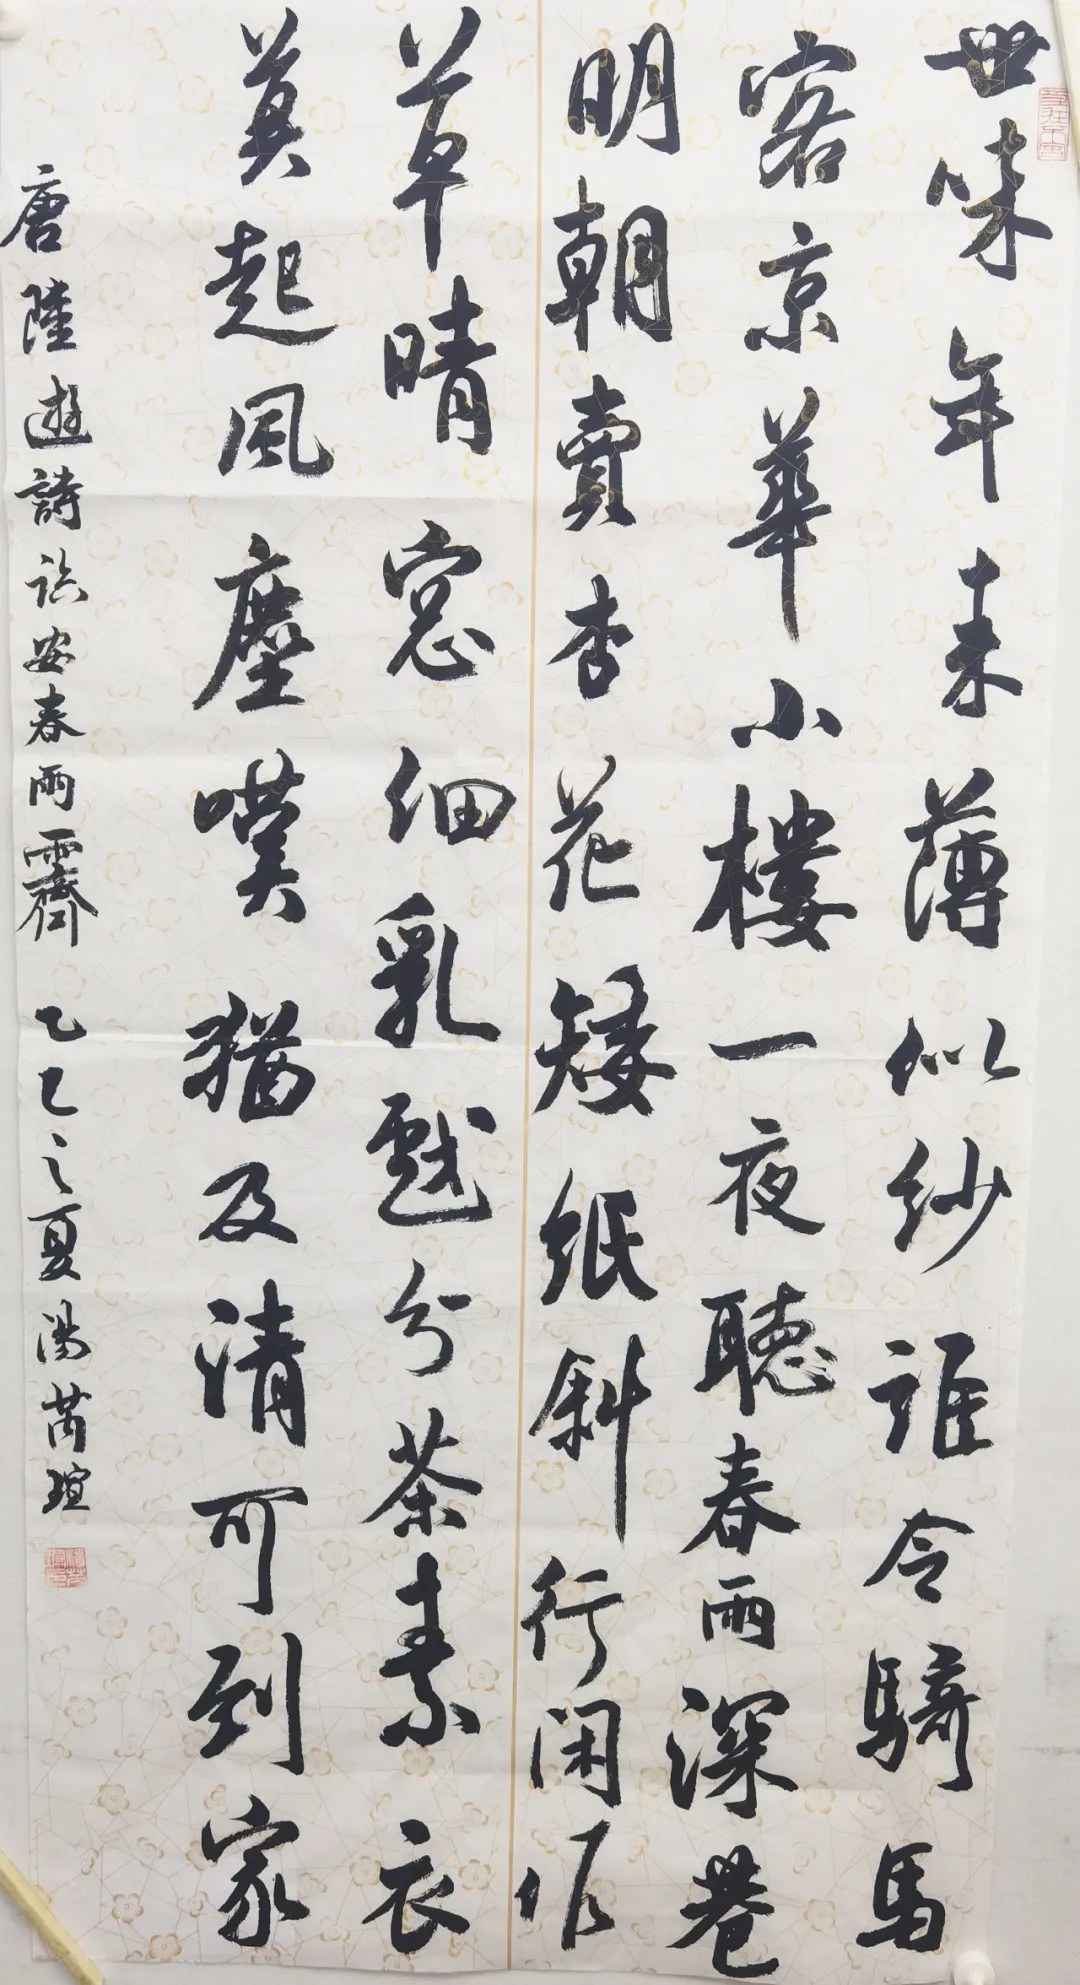 世味年来薄似紗誰令騎馬
客京華小樓一夜聽春雨深巷
明朝賣杏花矮紙斜行闲作
草晴窓細乳戲分茶素衣
莫起風塵嘆猶及清可到家
唐陸遊詩臨安春雨霽 乙巳之夏湯芮瑄